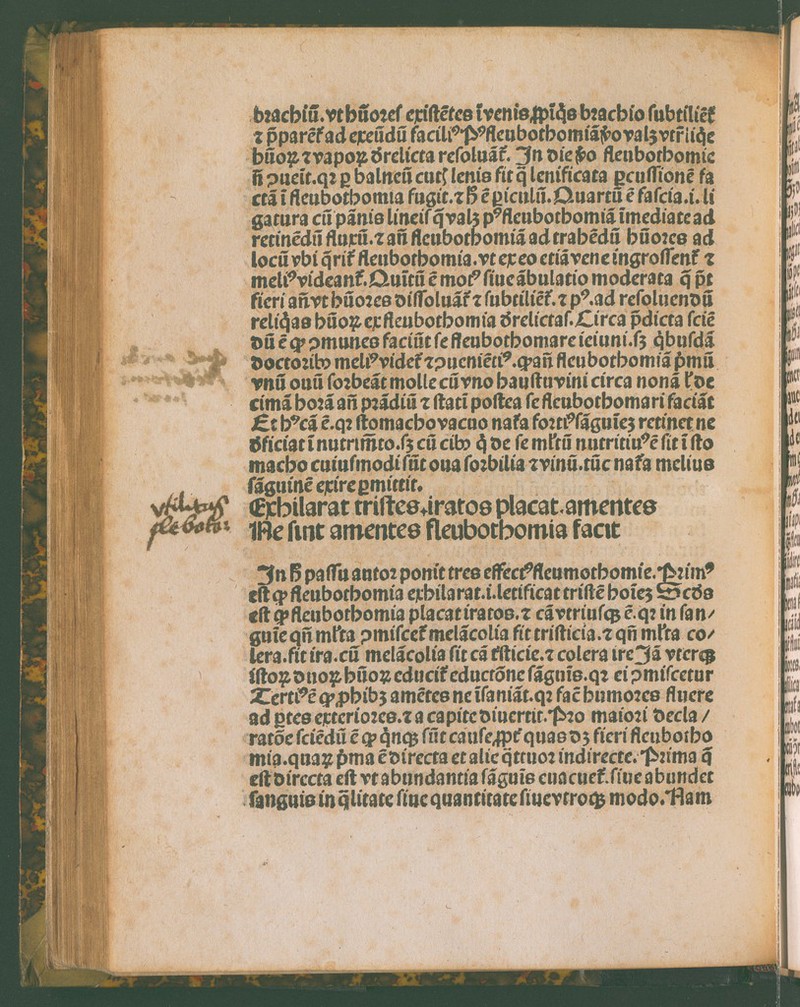 bꝛachiũ.vt hũoꝛeſ exiſtẽtes ĩ venis ꝓpĩq̃s bꝛachio ſubtiliẽt᷒
⁊ p̃parẽt᷒ ad exeũdũ faciliꝰ Pꝰ fleubothomiã ṽo valꝫ vtr̃ liq̃e
hũoꝝ ⁊ vapoꝝ ꝺrelicta reſoluãt᷒. In die ṽo fleubothomie
ñ ↄueĩt.qꝛ ꝑ balneũ cutꝭ lenis fit q̃ lenificata ꝑcuſſionẽ fa
ctã ĩ fleubothomia fugit.⁊ ħ ẽ ꝑiculũ. Quartũ ẽ faſcia.i.li
gatura cũ pãnis lineiſ q̃ valꝫ pꝰ fleubothomiã ĩmediate ad
retinẽdũ fluxũ.⁊ añ fleubothomiã ad trahẽdũ hũoꝛes ad
locũ vbi q̃rit᷒ fleubothomia.vt ex eo etiã vene ingroſſent᷒ ⁊
meliꝰ videant᷒. Quĩtũ ẽ motꝰ ſiue ãbulatio moderata q̃ p̃t
fieri añ vt hũoꝛes diſſoluãt᷒ ⁊ ſubtiliẽt᷒.⁊ pꝰ.ad reſoluendũ
reliq̃as hũoꝝ ex fleubothomia ꝺrelictaſ. Circa p̃dicta ſciẽ
dũ ẽ ꝙ ↄmunes faciũt ſe fleubothomare ieiuni.ſꝫ q̃buſdã
doctoꝛibꝰ meliꝰ videt᷒ ⁊ ↄueniẽtiꝰ.ꝙ añ fleubothomiã p̃mũ
vnũ ouũ ſoꝛbeãt molle cũ vno hauſtu vini circa nonã ł de
cimã hoꝛã añ pꝛãdiũ ⁊ ſtatĩ poſtea ſe fleubothomari faciãt
Et hꝰ cã ẽ.qꝛ ſtomacho vacuo nat᷒a foꝛtiꝰ ſãguiẽꝫ retinet ne
ꝺficiat ĩ nutrim̃to.ſꝫ cũ cibo q̃ de ſe młtũ nutritiuꝰ ẽ ſit ĩ ſto
macho cuiuſmodi ſũt oua ſoꝛbilia ⁊ vinũ.tũc nat᷒a melius
ſãguinẽ exire ꝑmittit.
Exhilarat triſtes.iratos placat.amentes
Ne ſint amentes fleubothomia facit
In ħ paſſu autoꝛ ponit tres effectꝰ fleumothomie. Pꝛimꝰ
eſt ꝙ fleubothomia exhilarat.i.letificat triſtẽ hoĩeꝫ Scds
eſt ꝙ fleubothomia placat iratos.⁊ cã vtriuſqꝫ ẽ.qꝛ in ſan⸗
guĩe qñ młta ↄmiſcet᷒ melãcolia fit triſticia.⁊ qñ młta co⸗
lera.fit ira.cũ melãcolia ſit cã t᷒ſticie.⁊ colera ire Jã vterqꝫ
iſtoꝝ duoꝝ hũoꝝ educit᷒ eductõne ſãguĩs.qꝛ ei ↄmiſcetur
Tertiꝰ ẽ ꝙ ꝓhibꝫ amẽtes ne ĩſaniãt.qꝛ fac̃ humoꝛes fluere
ad ꝑtes exterioꝛes.⁊ a capite diuertit. Pꝛo maioꝛi decla⸗
ratõe ſciẽdũ ẽ ꝙ q̃nqꝫ ſũt cauſe ꝓpt᷒ quas dꝫ fieri fleubotho
mia.quaꝝ p̃ma ẽ directa et alie q̃ttuoꝛ indirecte. Pꝛima q̃
eſt directa eſt vt abundantia ſãguĩs euacuet᷒.ſiue abundet
ſanguis in q̃litate ſiue quantitate ſiue vtroqꝫ modo. Nam